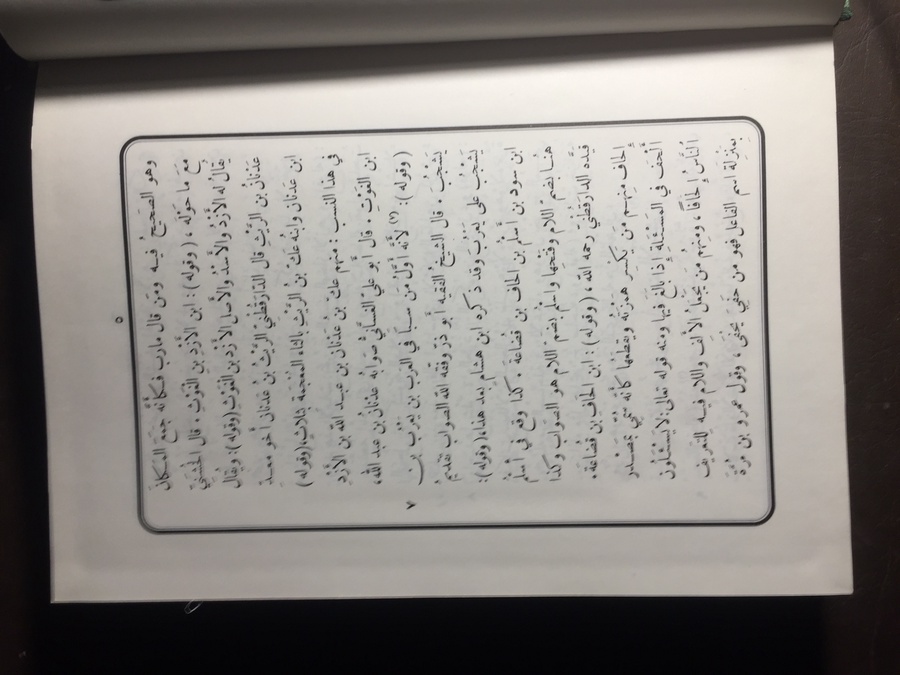 ٥
وهو الصَحِيحُ فيه ومَن قال مارب فكأنَّه جَمَعَ المكانَ
مَعَ ما حَوْلَه ، (وقوله): ابن الأَزْدِ بنِ الغَوْثِ ٠ قال الخُشَنِيُّ
يُقالُ له الأَزْدُ والأَسْدُ والأَصلُ الأَزْد بن الغَوْثِ (وقوله): ويُقالُ
عَدْنانُ بن الرَّيْثِ قال الدَّارَقُطْنِيُّ الرَّيْثُ بنُ عَدْنانَ أخو معدِّ
ابن عَدْنانَ وابنُه عَكُّ بنُ الرَّيْثِ بالثاء المُعْجَمَةِ بثلاثٍ، (وقوله)
في هذا النَسَبِ : منهم عَكُّ بن عَدْنانَ بن عبد الله بن الأَزْدِ
ابن الغَوْثِ ٠ قال أبو عَليٍّ الغَسَّانِيُّ صَوابُه عَدْنانُ بن عبد الله،
(وقوله): (٢) لأَنَّه أَوَّلُ مَن سَبَأَ في العَرَبِ بن يَعْرُبَ بن ٧
يَشْجُبَ ٠ قال الشيخُ الفَقِيه أبو ذَرٍّ وفقه الله الصَوابُ تَقْدِيمُ
يَشْجُبَ على يَعْرُبَ وقد ذكره ابن هشامٍ بعد هذا، (وقوله):
ابن سود بن أَسْلُم بن الحاف بن قُضاعَةَ ٠ كذا وقع في أَسْلُم
هنا بضمّ اللام وفَتْحِها وأَسْلُم بضمّ اللام هو الصواب وكذا
قَيَّده الدارَقُطْنِيّ رحمه الله ، (وقوله) : ابن الحاف بن قُضاعَةَ ٠
إلحاف منهم مَن يَكْسِر هَمْزَتَه ويقطَعُها كأنَّه سُمِّيَ بمَصْدَرِ
أَلحَفَ في المَسْئَلة إذا بالَغَ فيها ومنه قوله تعالى: لا يَسْئَلُونَ
النَّاسَ إلحافًا، ومنهم مَن يَجْعَلُ الأَلِفَ واللامَ فيه للتعريف
بمَنْزِلة اسم الفاعل فهو من حَفِيَ يَحْفَى ، وقول عمرو بن مُرَّةَ